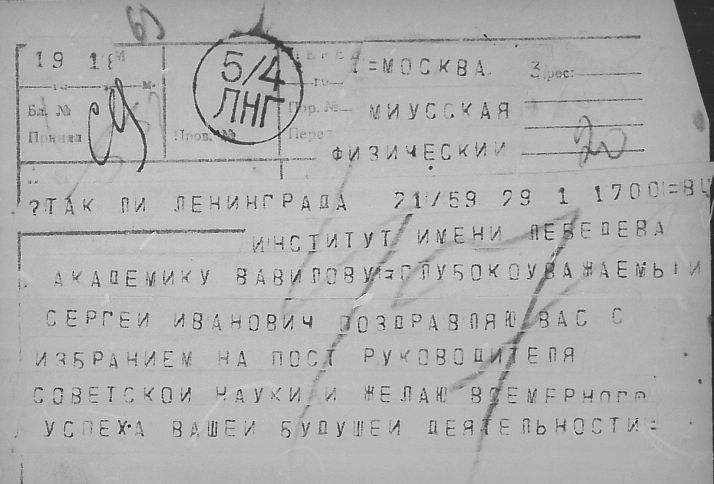 63
19 18 М
5/4
ЛНГ
1=МОСКВА 3 рес:
го м. го
Бл. № Пор. № МИУССКАЯ
Принял Пров. № Перед
ФИЗИЧЕСКИЙ 20
?ТАК ПИ ЛЕНИНГРАДА 21/59 29 1 1700=ВЦ
ИНСТИТУТ ИМЕНИ ЛЕБЕДЕВА
АКАДЕМИКУ ВАВИЛОВУ=ГЛУБОКОУВАЖАЕМЫЙ
СЕРГЕИ ИВАНОВИЧ ПОЗДРАВЛЯЮ ВАС С
ИЗБРАНИЕМ НА ПОСТ РУКОВОДИТЕЛЯ
СОВЕТСКОЙ НАУКИ И ЖЕЛАЮ ВСЕМЕРНОГО
УСПЕХА ВАШЕЙ БУДУШЕЙ ДЕЯТЕЛЬНОСТИ=